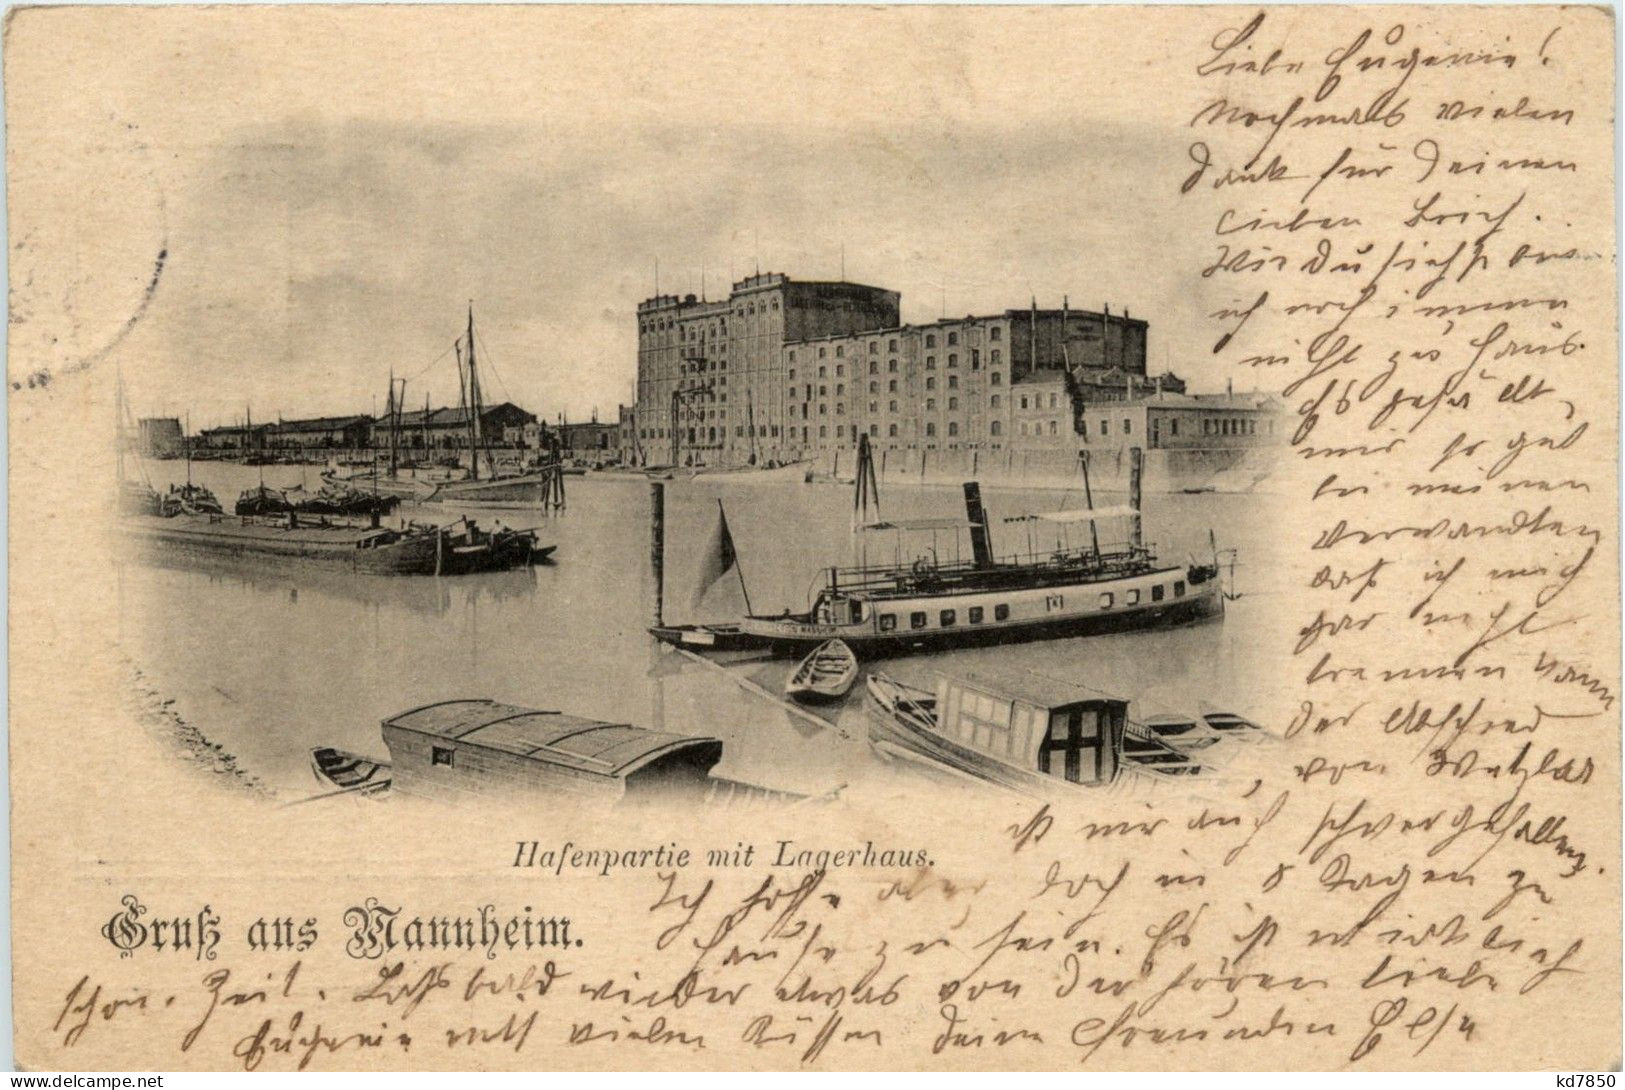 Liebe Eugenie!
Nochmals vielen
Dank für Deinen
lieben Brief.
Wie Du siehst bin
ich noch immer
nicht zu Haus.
Es gefällt
mir so gut
bei meinen
Verwandten
daß ich mich
gar nicht
trennen kann
Der Abschied
von Wetzlar
ist mir auch schwer gefallen.
Hafenpartie mit Lagerhaus.
Ich hoffe aber doch in 8 Tagen zu
Gruß aus Mannheim.
Hause zu sein. Es ist wirklich
schon Zeit. Laß bald wieder etwas von Dir hören liebe
Eugenie mit vielen Küssen Deine Freundin Else
delcampe.net
kd7850